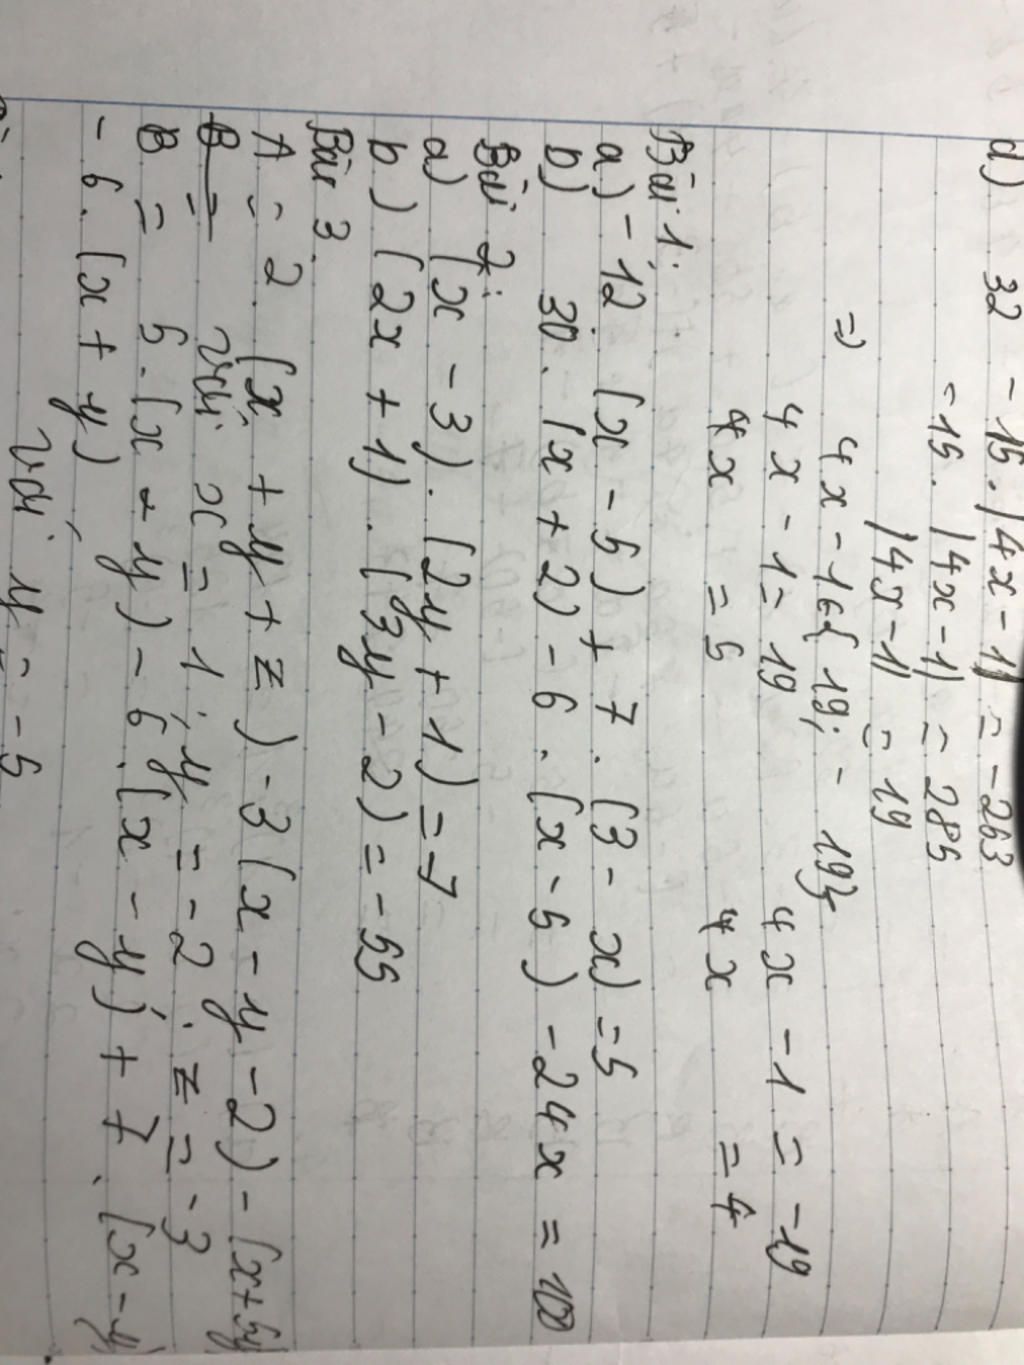 d) 32 - 15. |4x - 1| = -253
-15. |4x - 1| = 285
|4x - 1| = 19
=> 4x - 1 ∈ { 19; - 19}
4x - 1 = 19 4x - 1 = -19
4x = 5 4x = 4
Bài 1:
a) -12. (x - 5) + 7. (3 - x) = 5
b) 30. (x + 2) - 6. (x - 5) - 24x = 100
Bài 2:
a) (x - 3). (2y + 1) = 7
b) (2x + 1). (3y - 2) = -55
Bài 3.
A = 2 (x + y + z) - 3 (x - y - 2) - (x + 5y)
với x = 1; y = -2; z = -3
B = 5. (x - y) - 6. (x - y) + 7. (x - y)
- 6. (x + y)
với y = -5